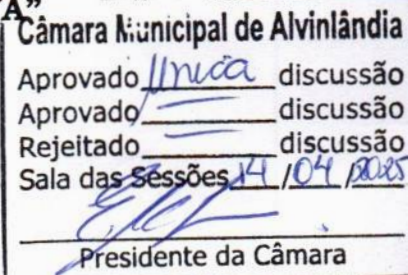 A”
Câmara Municipal de Alvinlândia
Aprovado Única discussão
Aprovado discussão
Rejeitado discussão
Sala das Sessões 14 / 04 / 2025
Presidente da Câmara